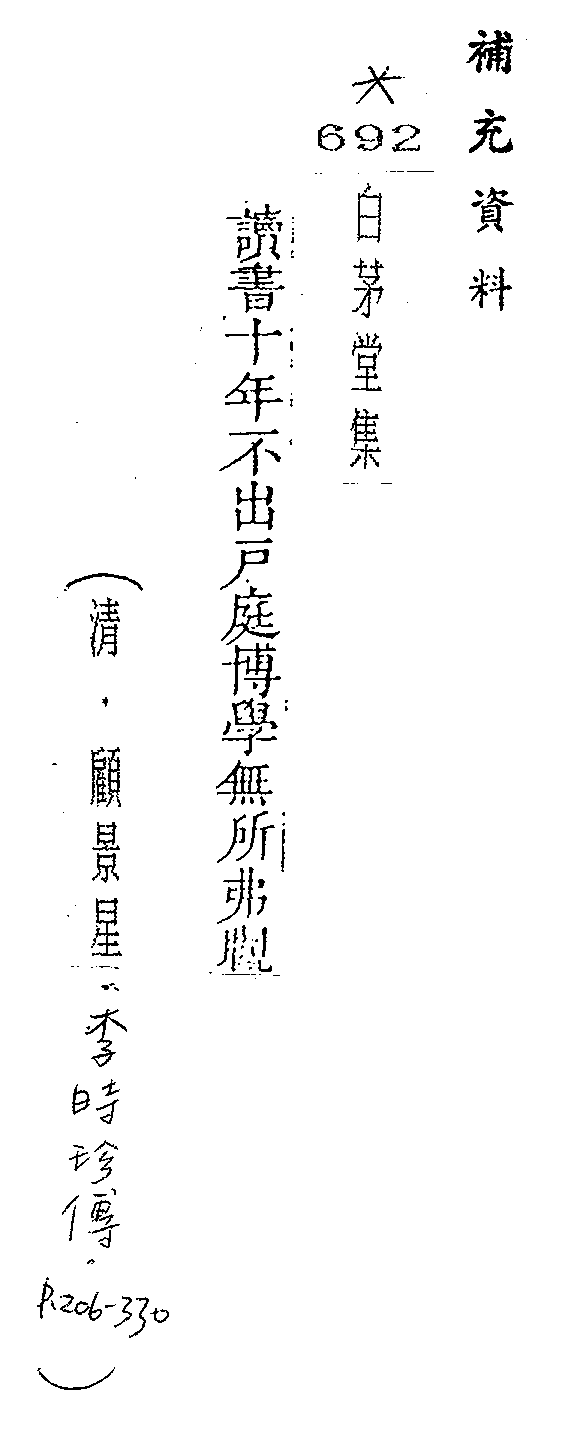 補充資料
*
692
白茅堂集
讀書十年不出戸庭博學無所弗覌
(清・顧景星"李時珍傳"
P.206-330
)